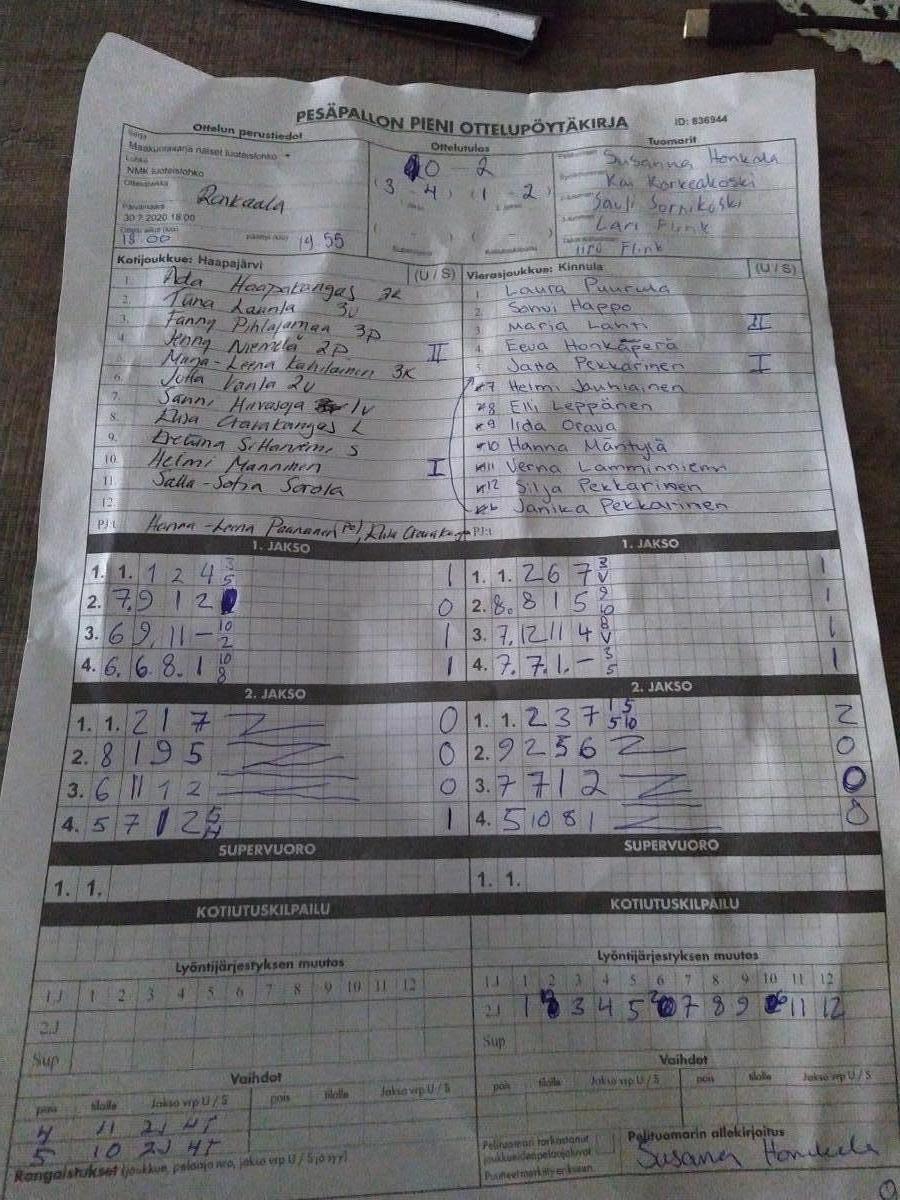 PESÄPALLON PIENI OTTELUPÖYTÄKIRJA
ID: 836944
Ottelun perustiedot
Sarja
Maakuntasarja naiset luoteislohko
Lohko
NMK luoteislohko
Ottelupaikka
Rankaala
Päivämäärä
30.7.2020 18:00
18:00
19.55
Ottelutulos
0 - 2
(3 - 4) (1 - 2)
1. jakso 2. jakso
( - ) ( - )
Supervuoro Kotiutuskilpailu
Tuomarit
Susanna Honkala
Kai Korkeakoski
Sauli Sornikoski
Lari Flink
Flink
Kotijoukkue: Haapajärvi (U / S)
1. Ada Haapakangas
2. Tuna 3v
3. Fanny Pihlajamaa 3p
4. Jenny Niemelä 2p II
5. Marja-Leena 3k
6. Jutta 2v
7. Sanni 1v
8. L
9. S
10. Helmi Manninen I
11. Salla-Sofia Sorola
12.
PJ:t Hanna-Leena
Vierasjoukkue: Kinnula (U / S)
1. Laura Puurula
2. Sonvi Happo
3. Maria Lahti II
4. Eeva Honkaperä
5. Jatta Pekkarinen I
7 Helmi Jauhiainen
8 Elli Leppänen
9 Iida Orava
10 Hanna Mäntylä
11 Verna Lamminniemi
12 Silja Pekkarinen
6 Janika Pekkarinen
PJ:t
1. JAKSO
1. 1. 1 2 4 3 5 1
2. 7. 9 1 2 0
3. 6 9 11 - 10 2 1
4. 6. 6 8. 1 10 8 1
1. JAKSO
1. 1. 2 6 7 3 V 1
2. 8. 8 1 5 9 10 1
3. 7. 12 11 4 8 V 1
4. 7. 7 1. - 3 5 1
2. JAKSO
1. 1. 2 1 7 0
2. 8 1 9 5 0
3. 6 11 1 2 0
4. 5 7 1 2 1
2. JAKSO
1. 1. 2 3 7 1 5 5 10 2
2. 9 2 5 6 0
3. 7 7 1 2 0
4. 5 10 8 1 0
SUPERVUORO
1. 1.
SUPERVUORO
1. 1.
KOTIUTUSKILPAILU
KOTIUTUSKILPAILU
Lyöntijärjestyksen muutos
1.J 1 2 3 4 5 6 7 8 9 10 11 12
2.J
Sup
Lyöntijärjestyksen muutos
1.J 1 2 3 4 5 6 7 8 9 10 11 12
2.J 1 3 4 5 7 8 9 11 12
Sup
Vaihdot
pois tilalle Jakso vrp U / S pois tilalle Jakso vrp U / S
4 11 2J 4T
5 10 2J 4T
Vaihdot
pois tilalle Jakso vrp U / S pois tilalle Jakso vrp U / S
Rangaistukset (joukkue, pelaaja nro, jakso vrp U / S ja syy)
Pelituomari tarkastanut
joukkueiden pelaajaluvat
Puutteet merkitty erikseen
Pelituomarin allekirjoitus
Susanna Honkala